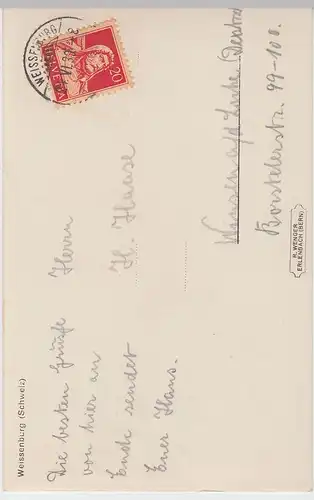 Weissenburg (Schweiz)
Die besten Grüße
von hier an
Ende sendet
Euer Hans.
WEISSENBURG
20
Herrn
H. Haase
Winsen a/d Luhe
Borstelerstr. 99-100.
R. WENGER
ERLENBACH (BERN)